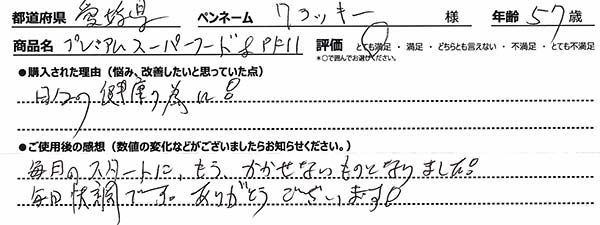 都道府県 愛媛県 ペンネーム クッキー 様 年齢 57 歳
商品名 プレミアムスーパーフード&PF11 評価 とても満足・満足・どちらとも言えない・不満足・とても不満足
*○で囲んでお選びください。
●購入された理由（悩み、改善したいと思っていた点）
日々の健康の為に!
●ご使用後の感想（数値の変化などがございましたらお知らせください。）
毎月のスタートに、もう、かかせないものとなりました!
毎日快調です。ありがとうございます!